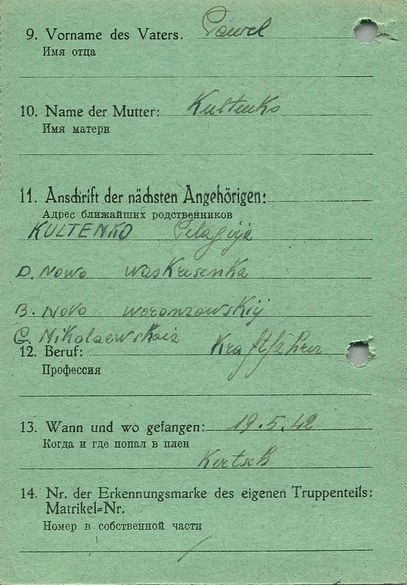 9. Vorname des Vaters. Pawel
Имя отца
10. Name der Mutter: Kultenko
Имя матери
11. Anschrift der nächsten Angehörigen:
Адрес ближайших родственников
KULTENKO Pelagija
D. Nowo waskresenka
B. Novo woronzowskij
G. Nikolaewskaia
12. Beruf: Kraftfahrer
Профессия
13. Wann und wo gefangen: 19.5.42
Когда и где попал в плен
Kertsch
14. Nr. der Erkennungsmarke des eigenen Truppenteils:
Matrikel-Nr.
Номер в собственной части
/